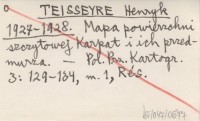 TEISSEYRE Henryk
1927-1928. Mapa powierzchni
szczytowej Karpat i ich przed-
murza. — Pol. Prz. Kartogr.
3: 129-134, m. 1, Rés.